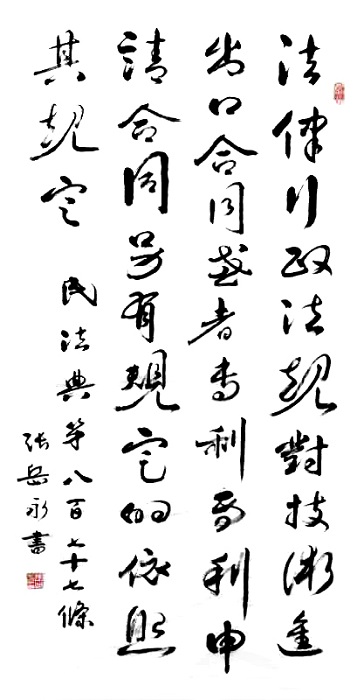 法律行政法規對技術進
出口合同或者專利專利申
請合同另有規定的依照
其規定 民法典第八百七十七條
張岳永書